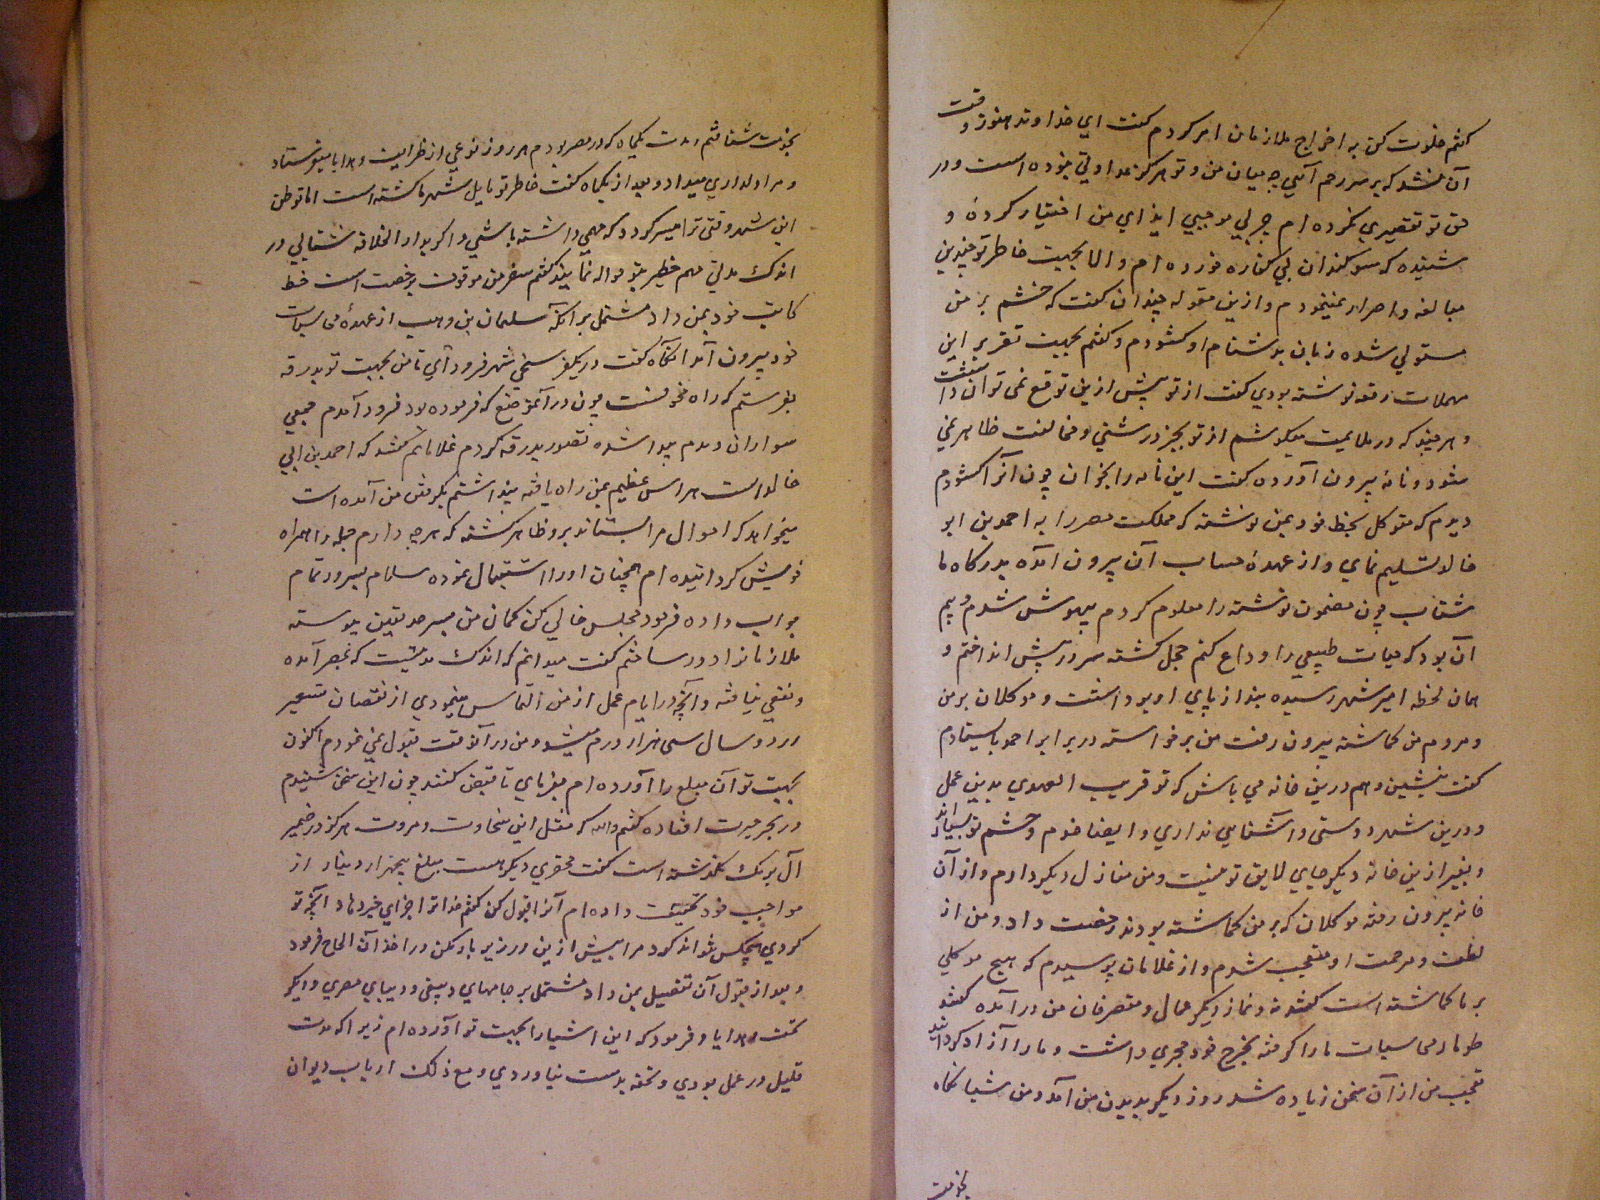 گفتم خلوت کن به اخراج ملازمان امر کردم گفت ای خداوند هنوز وقت
آن نشد که بر سر رحم آئی چه میان من و تو هرگز عداوتی نبوده است و در
حق تو تقصیری نکرده ام موجبی ایذای من اختیار کردهٔ و
شنیده که سوکندان کفاره خورده ام والا بجهت خاطر تو چندین
مبالغه و اصرار نمینمودم و ازین مقوله چندان گفت که خشم بر من
مستولی شده زبان بدشنام او کشودم و گفتم بجهت تقریر این
مهملات رقعه نوشته بودی گفت از تو بیش ازین توقع نمی توان داشت
و هر چند که در ملایمت میکوشم از تو بجز درشتی و مخالفت ظاهر نمی
شود و نامهٔ بیرون آورده گفت این نامه را بخوان چون آنرا کشودم
دیدم که متوکل بخط خود بمن نوشته که مملکت مصر را به احمد بن ابو
خالد تسلیم نمای و از عهدهٔ حساب آن بیرون آمده بدرگاه ما
شتاب چون مضمون نوشته را معلوم کردم بیهوش شدم و بیم
آن بود که حیات طبیعی را وداع کنم خجل کشته سر در پیش انداختم و
همان لحظه امیر شهر رسیده بند از پای او برداشت و موکلان بر من
و مردم من کماشته بیرون رفت من برخواسته در برابر احمد بایستادم
گفت بنشین و هم درین خانه می باش که تو قریب العهدی بدین عمل
و درین شهر دوستی و آشنایی نداری و ایضا خدم و حشم تو بسیارند
و بغیر ازین خانه دیکر جای لایق تو نیست و من منازل دیکر دارم و از آن
خانه بیرون رفته موکلان که بر من کماشته بودند رخصت داد و من از
لطف و مرحمت او متعجب شدم و از غلامان پرسیدم که هیچ موکلی
بر ما کماشته است گفتند نه و نماز دیکر عمال و متصرفان من در آمده گفتند
طومار محاسبات ما را گرفته بخرج خود مجری داشت و ما را آزاد کردانید
تعجب من از آن سخن زیاده شد روز دیکر بدیدن من آمد و من شبانگاه
بخدمت
بخدمت شتافتم و مدت یکماه که در مصر بودم هر روز نوعی از ظرایف و هدایا میفرستاد
و مرا دلداری میداد و بعد از یکماه گفت خاطر تو مایل شهر ما گشته است اما توطن
این شهر وقتی ترا میسر کردد که مهمی داشته باشی و اگر بدار الخلافه شتابی در
اندک مدتی مهم خطیر بتو حواله نمایند گفتم سفر من موقوف برخصت است خط
کاتب خود بمن داد مشتمل بر آنکه سلیمان بن وهب از عهدهٔ محاسبات
خود بیرون آمد آنگاه گفت در یکفرسخی شهر فرود آی تا من بجهت تو بدرقه
بفرستم که راه مخوفست چون در آنموضع که فرموده بود فرود آمدم جمعی
سواران دیدم پیدا شده تصور بدرقه کردم غلامانم گفتند که احمد بن ابی
خالد است هراس عظیم بمن راه یافته پنداشتم بگرفتن من آمده است
میخواهد که اموال مرا بستاند برو ظاهر کشته که هر چه دارم جمله را همراه
خویش کردانیده ام همچنان او را استقبال نموده سلام بر سرور تمام
جواب داده فرمود مجلس خالی کن کمان من بسرحد یقین پیوسته
ملازمانرا دور ساختم گفت میدانم که اندک مدتیست که بمصر آمده
و نفعی نیافته و آنچه در ایام عمل از من التماس مینمودی از نقصان تسعیر
در دو سال سی هزار درم میشد و من در آنوقت قبول نمی نمودم اکنون
بجهت تو آن مبلغ را آورده ام بفرمای تا قبض کنند چون این سخن شنیدم
در بحر حیرت افتاده گفتم والله که مثل این سخاوت و مروت هرگز در ضمیر
آل برمک نگذشته است گفت محقری دیکر هست مبلغ پنجهزار دینار از
مواجب خود تخفیف داده ام آنرا قبول کن گفتم خداترا جزای خیر دهاد آنچه تو
کردی هیچکس نتواند کرد مرا بیش ازین در زیر بار مکن در اخذ آن الحاح فرمود
و بعد از قبول آن تفصیل بمن داد مشتمل بر جامهای دبیقی و دیبای مصری و دیکر
تحف و هدایا و فرمود که این اشیا را بجهت تو آورده ام زیرا که مدت
قلیل در عمل بودی و تحفه بدست نیاوردی و مع ذلک ارباب دیوان